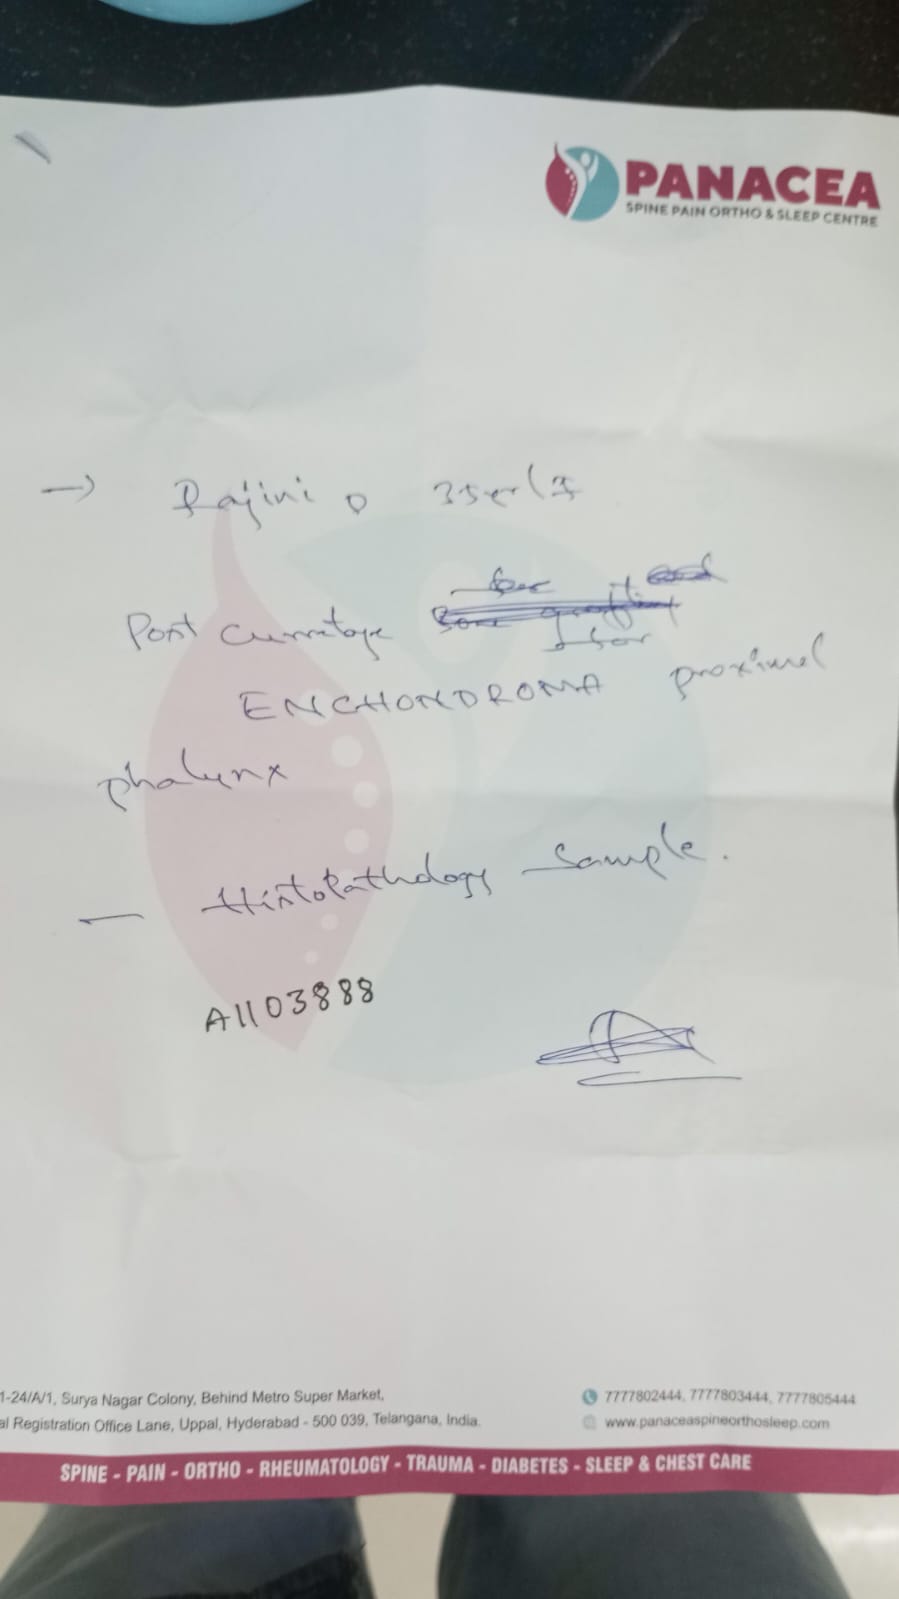 PANACEA
SPINE PAIN ORTHO & SLEEP CENTRE
→ Rajini
Post Curretage
ENCHONDROMA proximal
phalynx
— Histopathology Sample.
A1103888
1-24/A/1, Surya Nagar Colony, Behind Metro Super Market,
al Registration Office Lane, Uppal, Hyderabad - 500 039, Telangana, India.
7777802444, 7777803444, 7777805444
www.panaceaspineorthosleep.com
SPINE - PAIN - ORTHO - RHEUMATOLOGY - TRAUMA - DIABETES - SLEEP & CHEST CARE